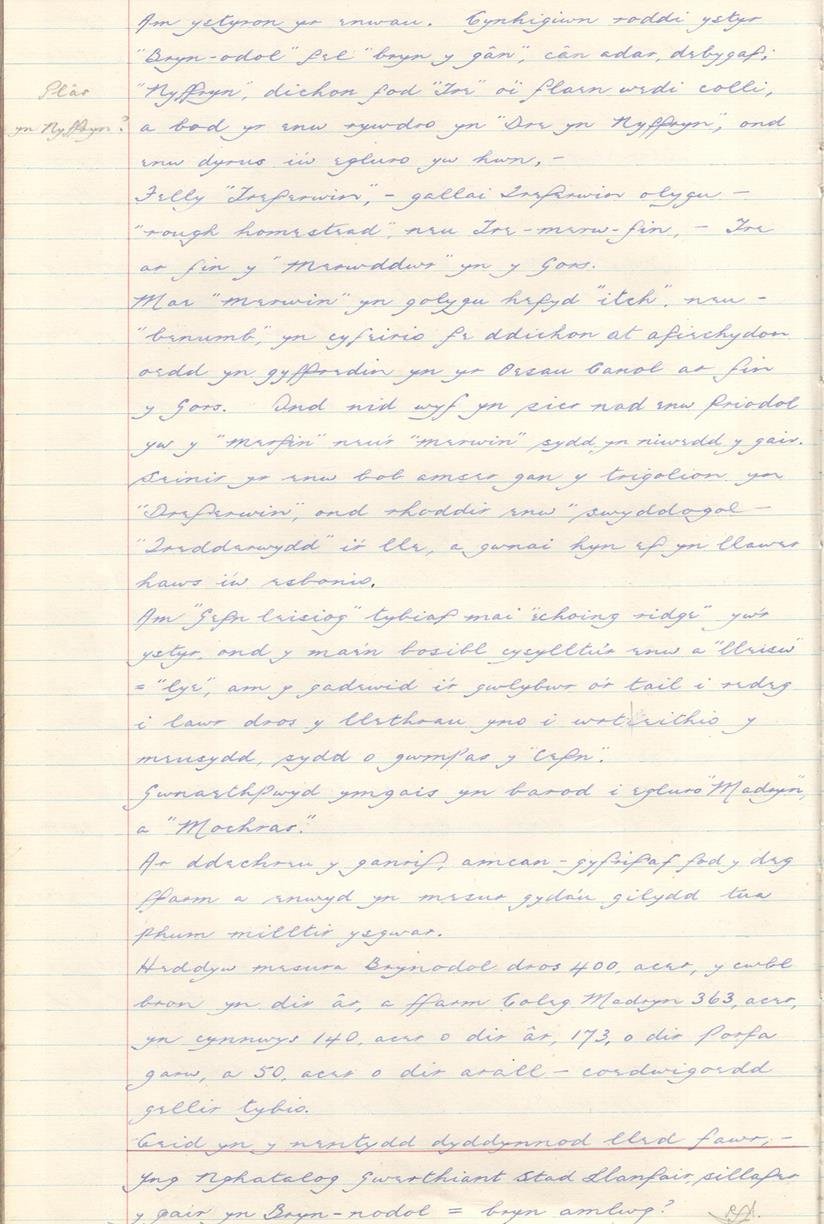 Am ystyron yr enwau. Cynhigiwn roddi ystyr
"Bryn-odol" fel "bryn y gân", cân adar, debygaf;
Plâs
"Nyffryn", dichon fod "Tre" o'i flaen wedi colli,
yn Nyffryn?
a bod yr enw rywdro yn "Dre yn Nyffryn", ond
enw dyrus i'w egluro yw hwn, -
Felly "Treferwin", - gallai Treferwin olygu -
"rough homestead", neu Tre-merw-fin, - Tre
ar fin y "Merwddwr" yn y Gors.
Mae "merwin" yn golygu hefyd "itch", neu -
"benumb", yn cyfeirio fe ddichon at afiechydon
oedd yn gyffredin yn yr Oesau Canol ar fin
y Gors. Ond nid wyf yn sicr nad enw priodol
yw y "Merfin" neu'r "merwin" sydd yn niwedd y gair.
Seinir yr enw bob amser gan y trigolion yn
"Dreferwin", ond rhoddir enw "swyddogol -
"Tredderwydd" i'r lle, a gwnai hyn ef yn llawer
haws i'w esbonio.
Am "Gefn Leisiog" tybiaf mai "echoing ridge" yw'r
ystyr, ond y mae'n bosibl cysylltu'r enw a "lleisw"
= "lye", am y gadewid i'r gwlybwr o'r tail i redeg
i lawr dros y llethrau yno i wrteithio y
meusydd, sydd o gwmpas y "Cefn".
Gwnaethpwyd ymgais yn barod i egluro "Madryn",
a "Mochras."
Ar ddechreu y ganrif, amcan-gyfrifaf fod y deg
ffarm a enwyd yn mesur gyda'u gilydd tua
phum milltir ysgwar.
Heddyw mesura Brynodol dros 400, acer, y cwbl
bron yn dir âr, a ffarm Coleg Madryn 363, acer,
yn cynnwys 140, acer o dir âr, 173, o dir porfa
garw, a 50, acer o dir arall - coedwigoedd
gellir tybio.
Ceid yn y nentydd dyddynnod lled fawr, -
Yng Nghatalog Gwerthiant Stad Llanfair, sillafer
y gair yn Bryn-nodol = bryn amlwg?